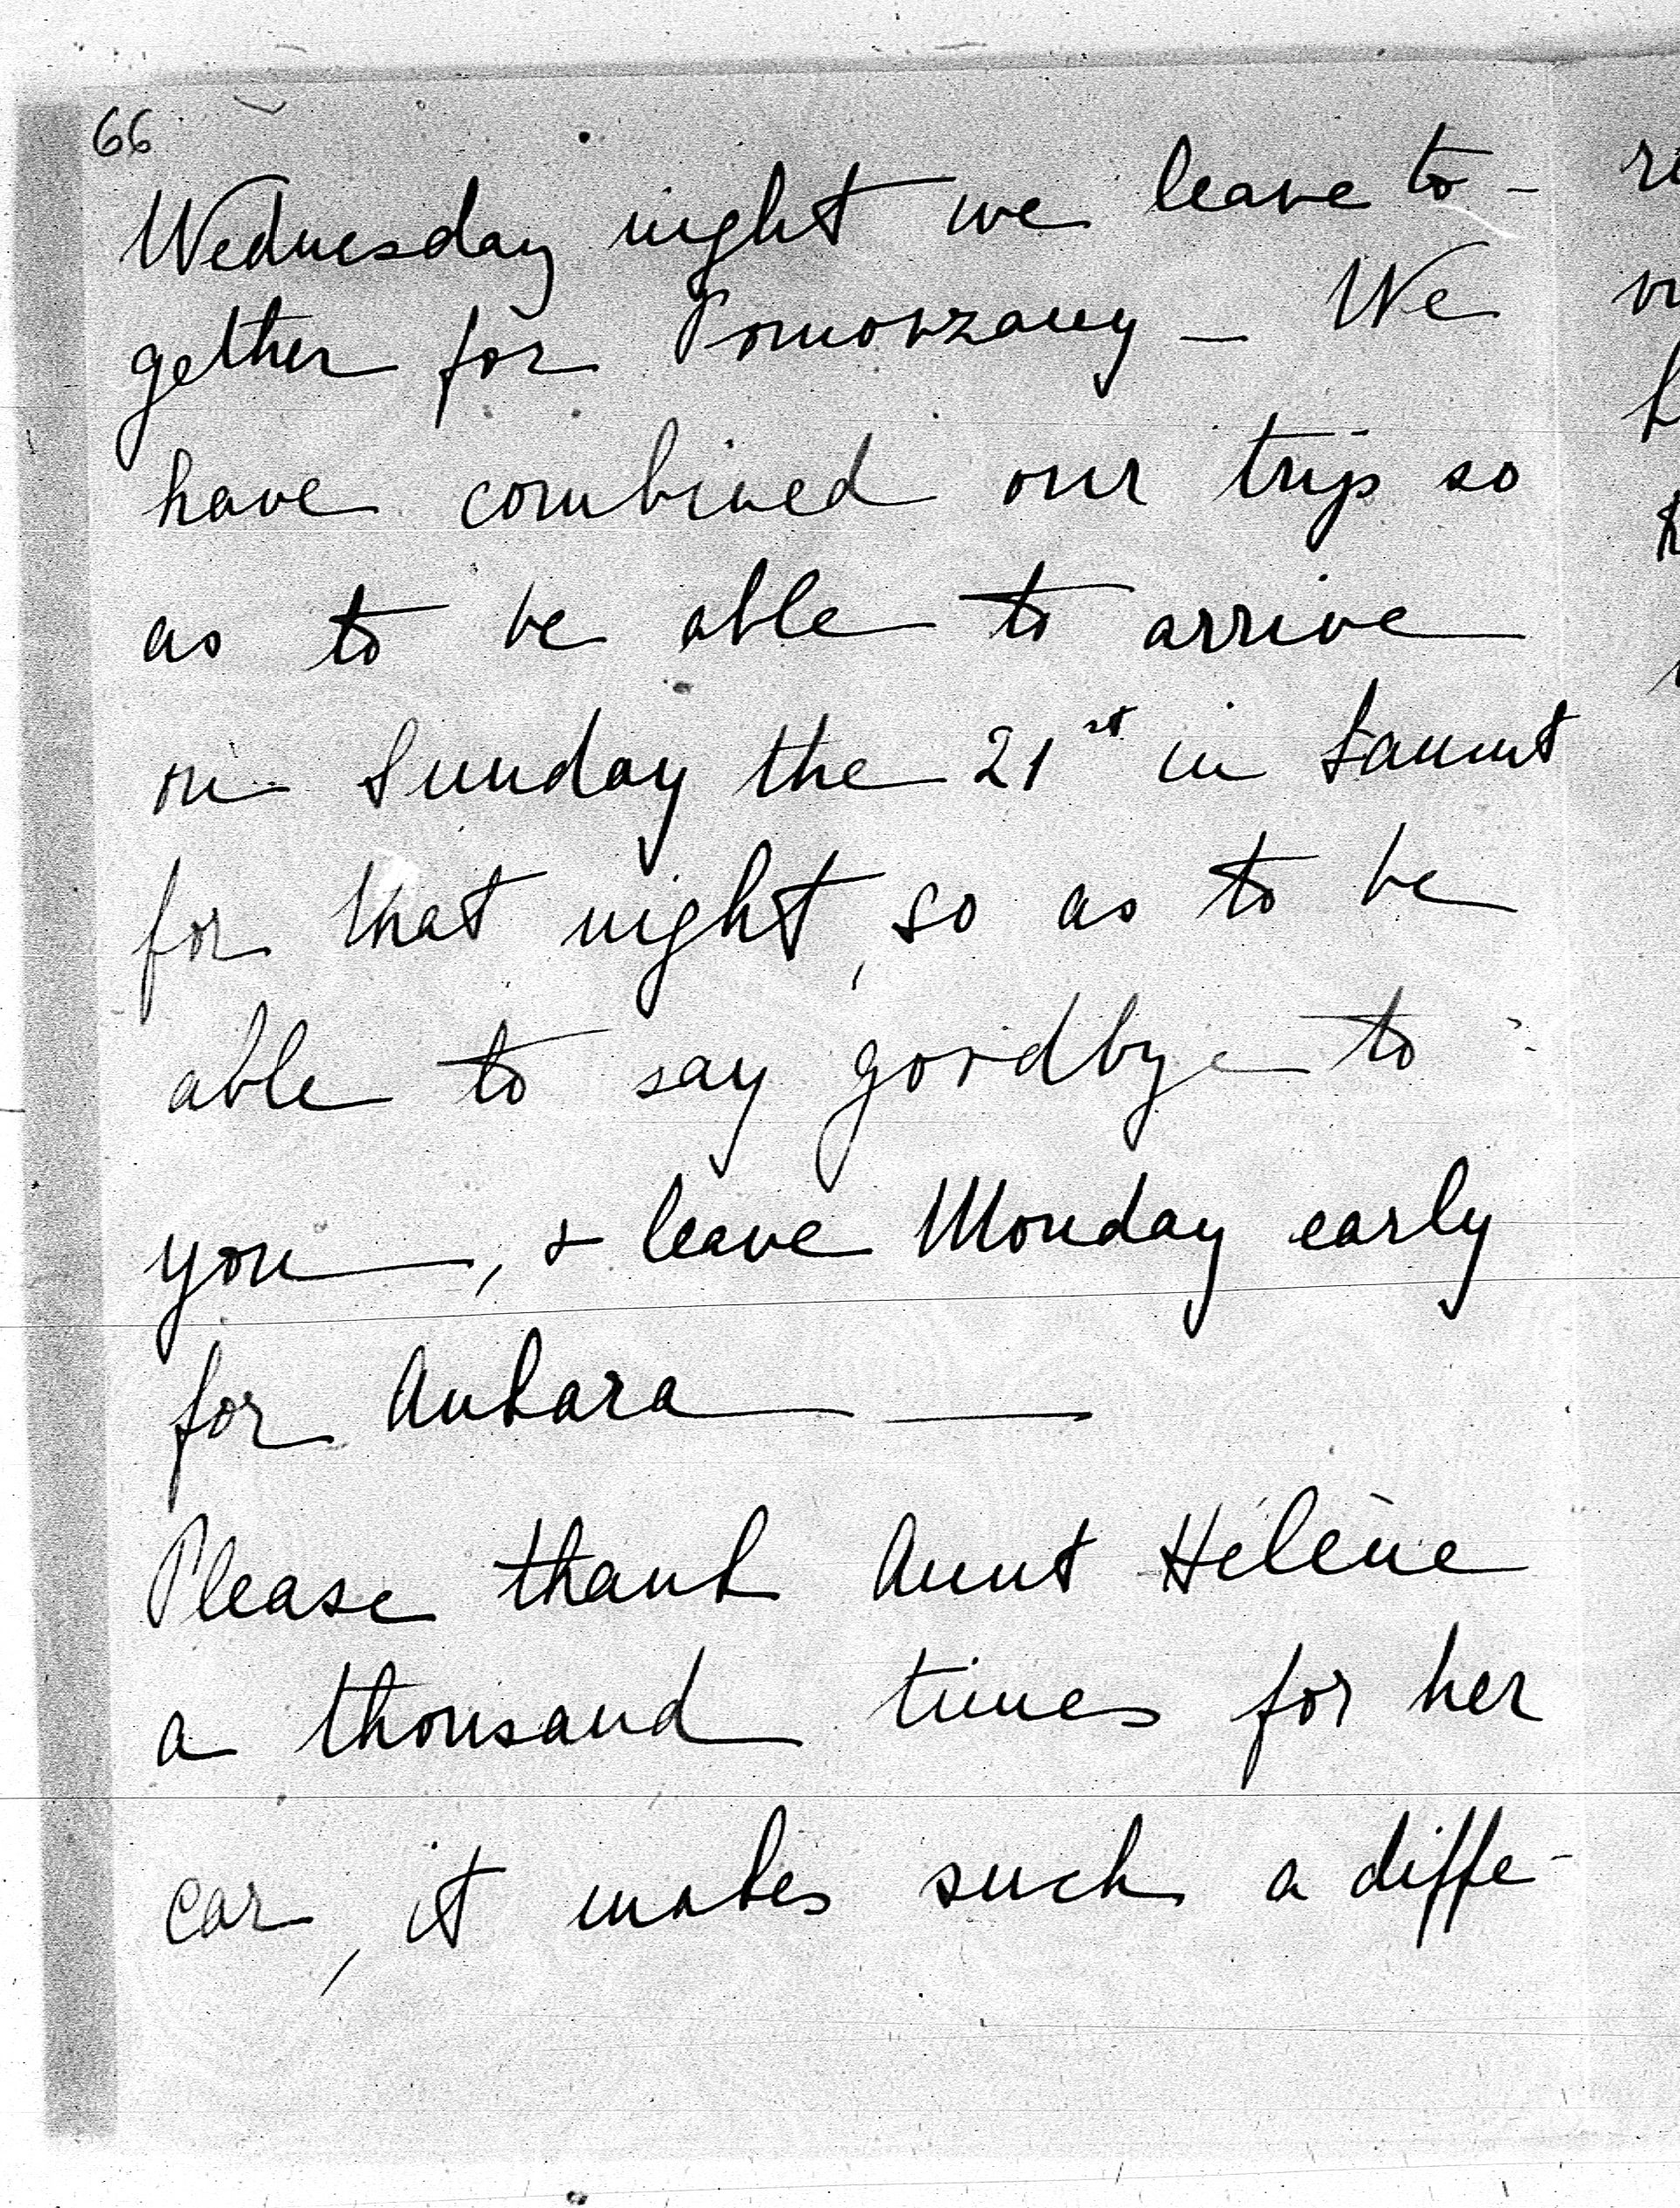 66
Wednesday night we leave to-
gether for Pomorzany – We
have combined our trip so
as to be able to arrive
on Sunday the 21st in Łańcut
for that night, so as to be
able to say goodbye to
you —, & leave Monday early
for Ankara — —
Please thank Aunt Hélène
a thousand times for her
car, it makes such a diffe-